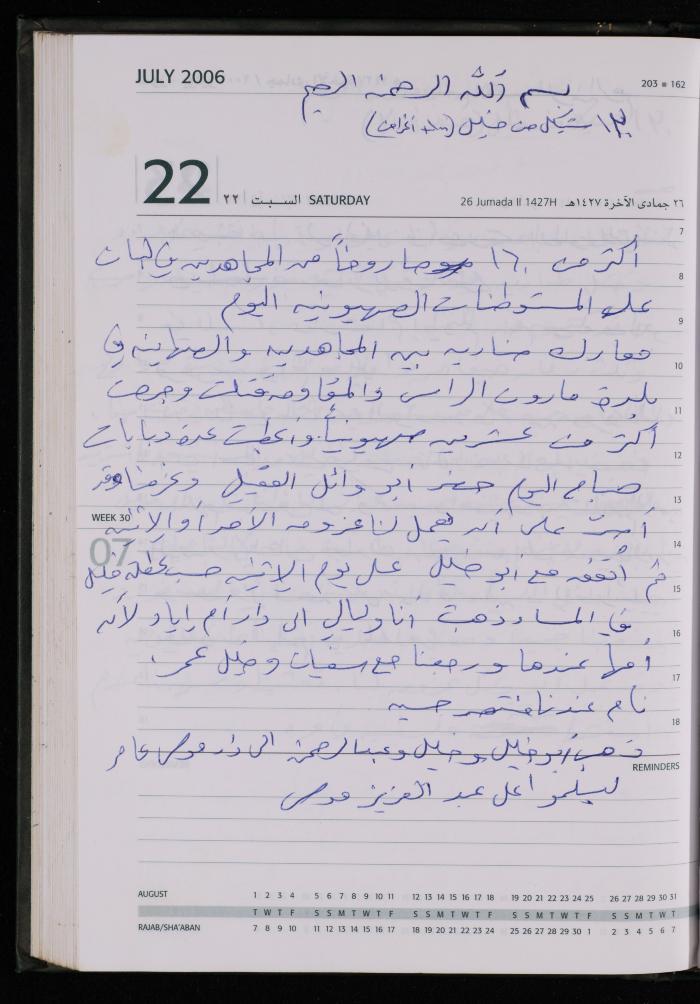 JULY 2006
بسم الله الرحمن الرحيم
203 ▪ 162
١٣٠ شيكل من خليل
22
٢٢ السبت SATURDAY
26 Jumada II 1427H ٢٦ جمادى الآخرة ١٤٢٧هـ
7
أكثر من ١٦٠ صاروخاً من المجاهدين في لبنان
8
على المستوطنات الصهيونية اليوم
9
معارك ضارية بين المجاهدين والصهاينة في
10
بلدة مارون الراس والمقاومة قتلت وجرحت
11
أكثر من عشرين صهيونياً وأعطبت عدة دبابات
12
صباح اليوم حضر أبو وائل العقيل وعزمنا وقد
13
WEEK 30
أصرت على أن يعمل لنا عزومة الأحد أو الاثنين
14
07
ثم اتفق مع أبو خليل على يوم الاثنين حسب عطلة خليل
15
في المساء ذهبت أنا وليالي الى دار أم إياد لأن
16
أمها عندها ورجعنا مع سفيان وخليل عمر
17
نام عندنا منتصر حسين
18
ذهب أبو خليل وخليل وعبد الرحمن الى دار موسى عامر
REMINDERS
ليسلموا على عبد العزيز موسى
AUGUST 1 2 3 4 5 6 7 8 9 10 11 12 13 14 15 16 17 18 19 20 21 22 23 24 25 26 27 28 29 30 31
T W T F S S M T W T F S S M T W T F S S M T W T F S S M T W T
RAJAB/SHA'ABAN 7 8 9 10 11 12 13 14 15 16 17 18 19 20 21 22 23 24 25 26 27 28 29 30 1 2 3 4 5 6 7